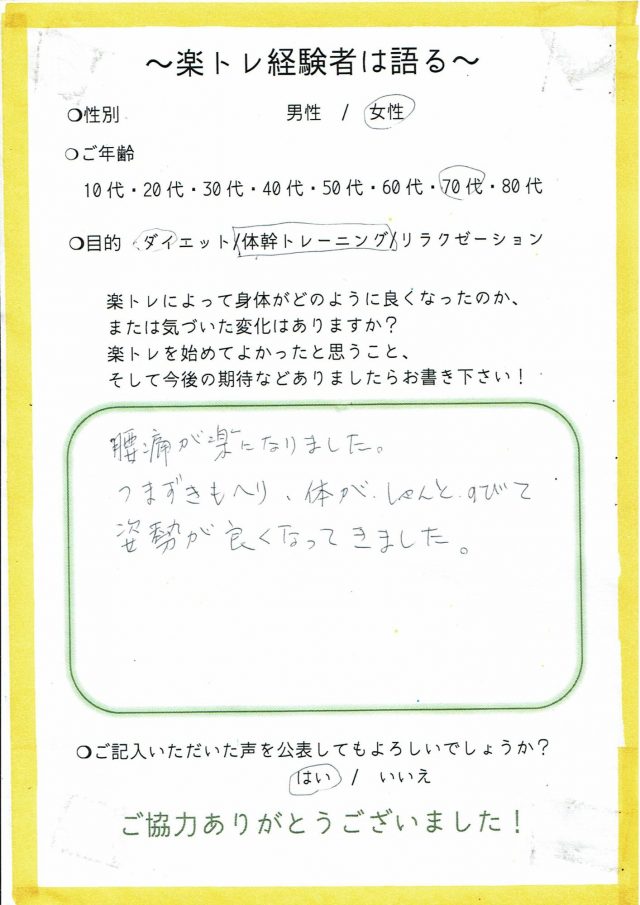 ～楽トレ経験者は語る～
❍性別 男性 / 女性
❍ご年齢
10代・20代・30代・40代・50代・60代・70代・80代
❍目的 ダイエット/体幹トレーニング/リラクゼーション
楽トレによって身体がどのように良くなったのか、
または気づいた変化はありますか？
楽トレを始めてよかったと思うこと、
そして今後の期待などありましたらお書き下さい！
腰痛が楽になりました。
つまずきもへり、体がしゃんとのびて
姿勢が良くなってきました。
❍ご記入いただいた声を公表してもよろしいでしょうか？
はい / いいえ
ご協力ありがとうございました！